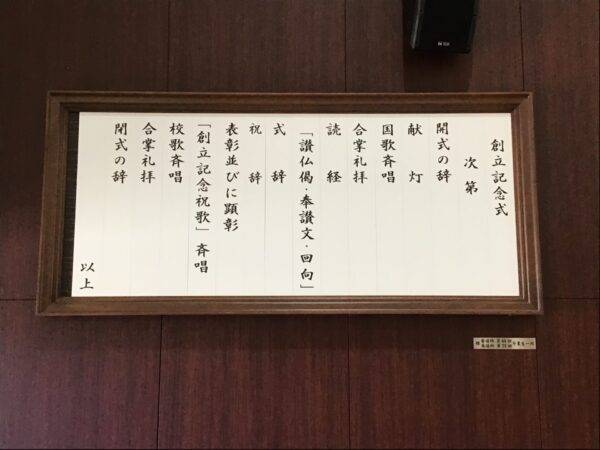 創立記念式
次第
開式の辞
献灯
国歌斉唱
合掌礼拝
読経
「讃仏偈・奉讃文・回向」
式辞
祝辞
表彰並びに顕彰
「創立記念祝歌」斉唱
校歌斉唱
合掌礼拝
閉式の辞
以上